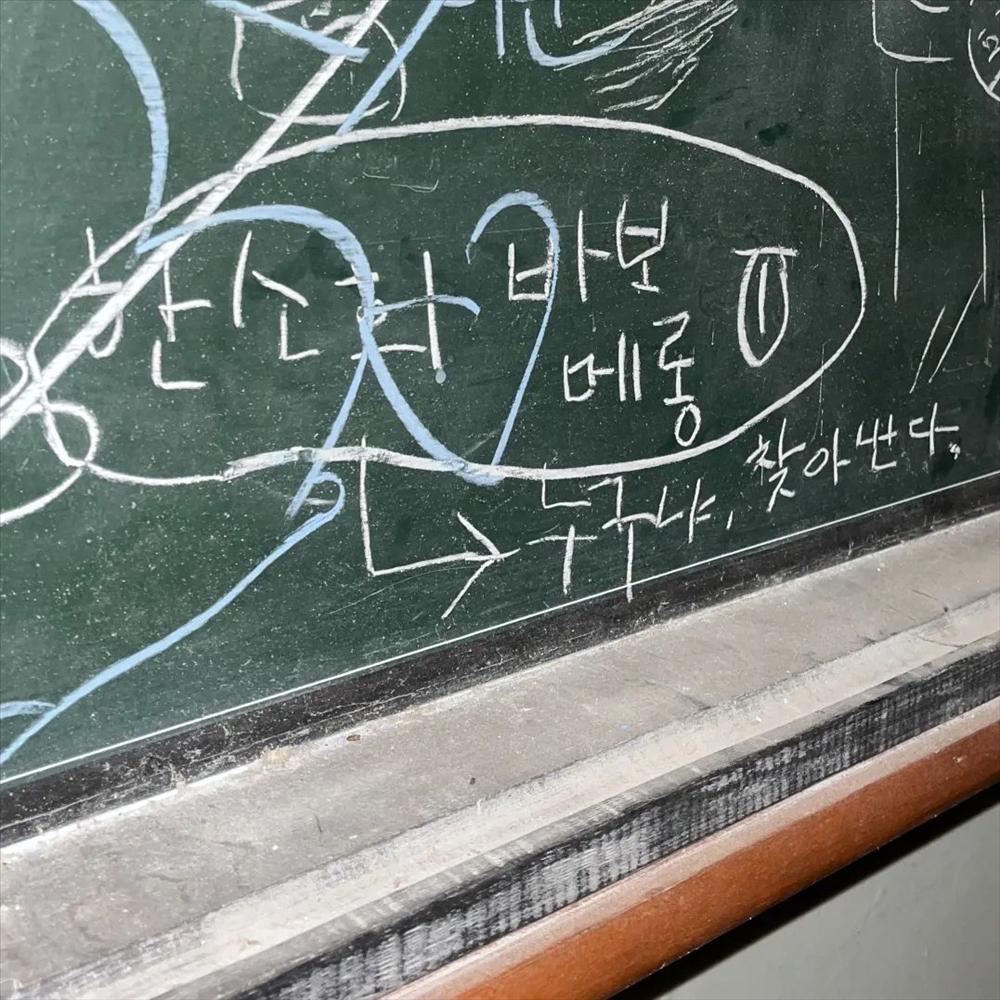 한소희 바보
메롱
누구냐, 찾아낸다.